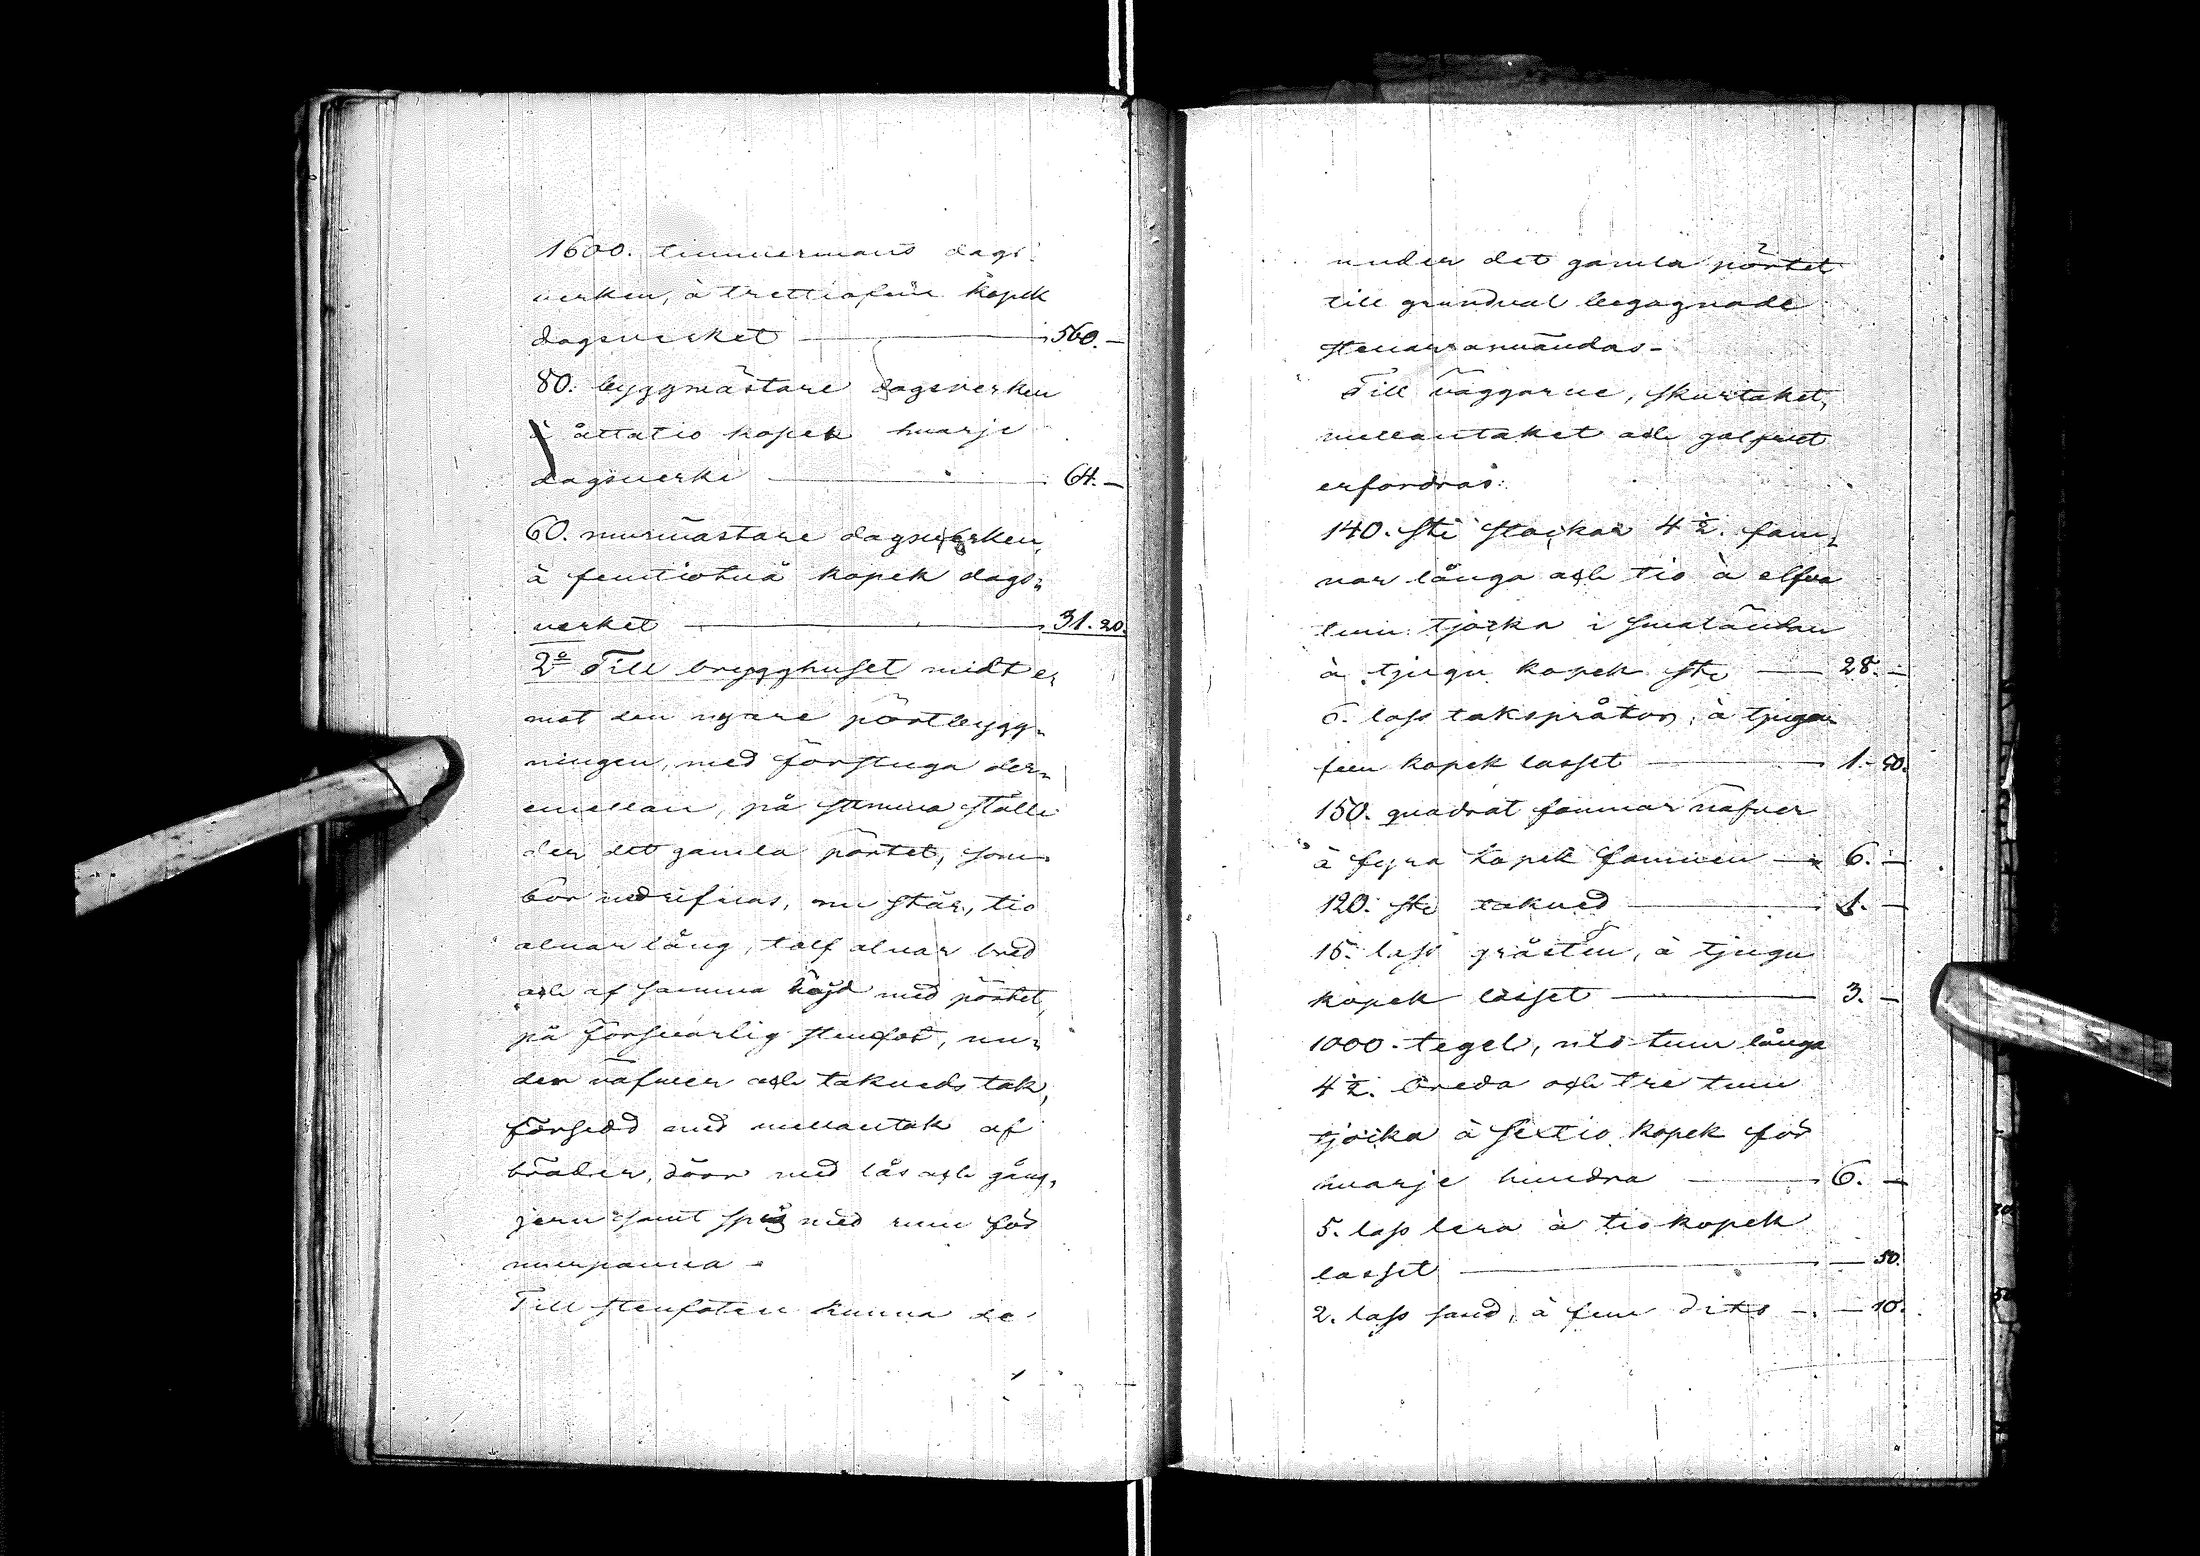 1600. timmermans dags-
verken, à trettiofem kopek
dagsverket 560.—
80. byggmästare dagsverken
à åttatio kopek hvarje
dagsverke 64.—
60. murmästare dagsverken,
à femtiotvå kopek dags-
verket 31.20.
2o Till brygghuset midt e-
mot den nyare pörtbygg-
ningen, med förstuga der-
emellan, på samma ställe
der det gamla pörtet, som
bör nedrifvas, nu står, tio
alnar lång, tolf alnar bred
och af samma höjd med pörtet,
på försvarlig stenfot, un-
der näfver och takveds tak,
försedd med mellantak af
bräder, dörr med lås och gång-
jern samt spis med rum för
murpanna.
Till stenfoten kunna de
under det gamla pörtet
till grundval begagnade
stenar användas.
Till väggarne, skurtaket,
mellantaket och golfvet
erfordras:
140. st. stockar 4 1/2. fam-
nar långa och tio à elfva
tum tjocka i smaländan
à tjugu kopek st. 28.—
6. lass taksprätor, à tjugu
fem kopek lasset 1.50.
150. quadrat famnar näfver
à fyra kopek famnen 6.—
120. st. takved 1.—
15. lass gråsten, à tjugu
kopek lasset 3.—
1000. tegel, nio tum långa
4 1/2. breda och tre tum
tjocka à sextio kopek för
hvarje hundra 6.—
5. lass lera à tio kopek
lasset — 50.
2. lass sand, à fem dito — 10.